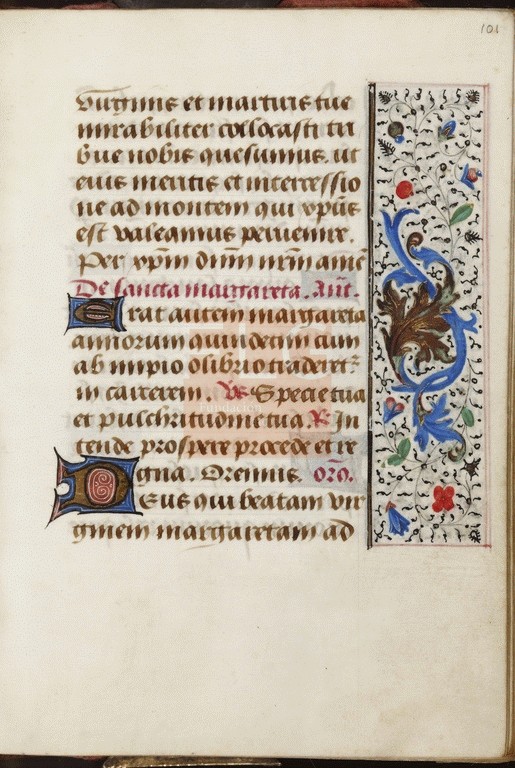 101
virginis et martiris tue
mirabiliter collocasti tri
bue nobis quesumus. ut
eius meritis et intercessio
ne ad montem qui xp̄us
est valeamus peruenire.
Per xp̄m dn̄m nr̄m amē
De sancta margareta. An̄t.
Erat autem margareta
annorum quindecim cum
ab impio olibrio traderet᷑
in carcerem. ℣ Specie tua
et pulchritudine tua ℟ In
tende prospere procede et re
gna. Oremus. orō.
Deus qui beatam vir
ginem margaretam ad
Fundación